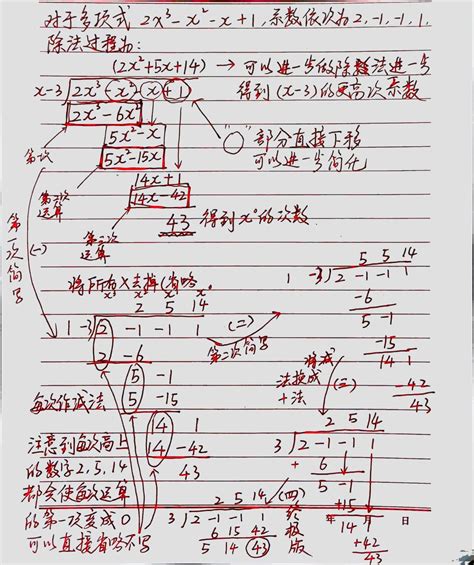 对于多项式 2x³-x²-x+1, 系数依次为 2, -1, -1, 1.
除法过程为:
(2x²+5x+14) → 可以进一步做除法进一步
得到 (x-3)的更高次系数
x-3 2x³-x²-x+1
2x³-6x²
5x²-x
5x²-15x
"○"部分直接下移
可以进一步简化
第一次
14x+1
14x-42
第二次
运算
43 得到x⁰的次数.
第三次
运算
第一次简写
(一)
将所有X去掉(省略)
x² x¹ x⁰
2 5 14
1 -3 2 -1 -1 1
2 -6
5 -1
5 -15
14 1
14 -42
43
(二)
第二次简写
5 5 14
1 -3 2 -1 -1 1
-6
5 -1
-15
14 1
-42
43
将减
法换成
+法
(三)
2 5 14
3 2 -1 -1 1
+ 6
5 -1
+15
14 1
+42
43
每次作减法
注意到每次商上
的数字2, 5, 14
都会使每次运算
的第一项变成0
可以直接省略不写
(四)
终极版
2 5 14
3 2 -1 -1 1
6 15 42
5 14 43
日